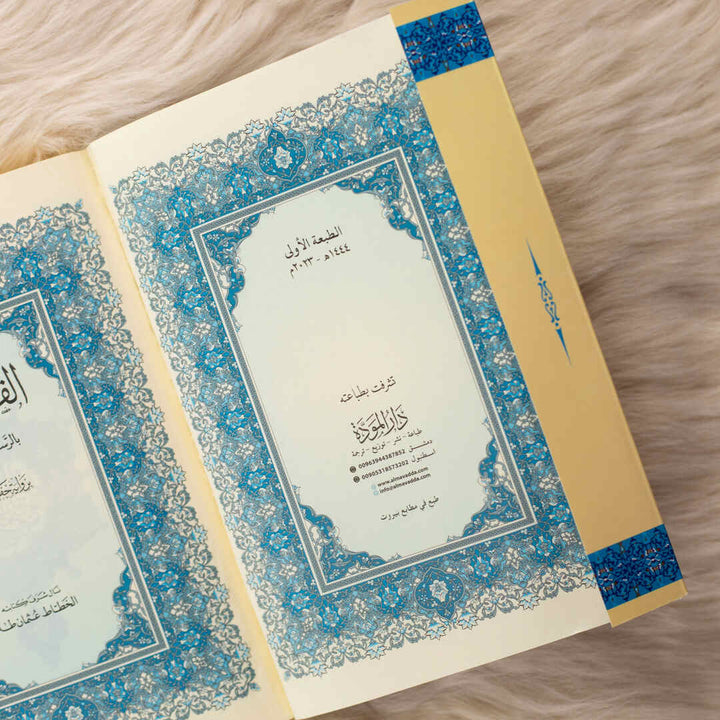 الطبعة الأولى
١٤٤٤هـ - ٢٠٢٣م
تشرفت بطباعته
دار المودة
طباعة - نشر - توزيع - ترجمة
دمشق 00963944387852
اسطنبول 00905318573202
www.almavadda.com
info@almavadda.com
طبع في مطابع بيروت
بالرس
الخطاط عثمان طا